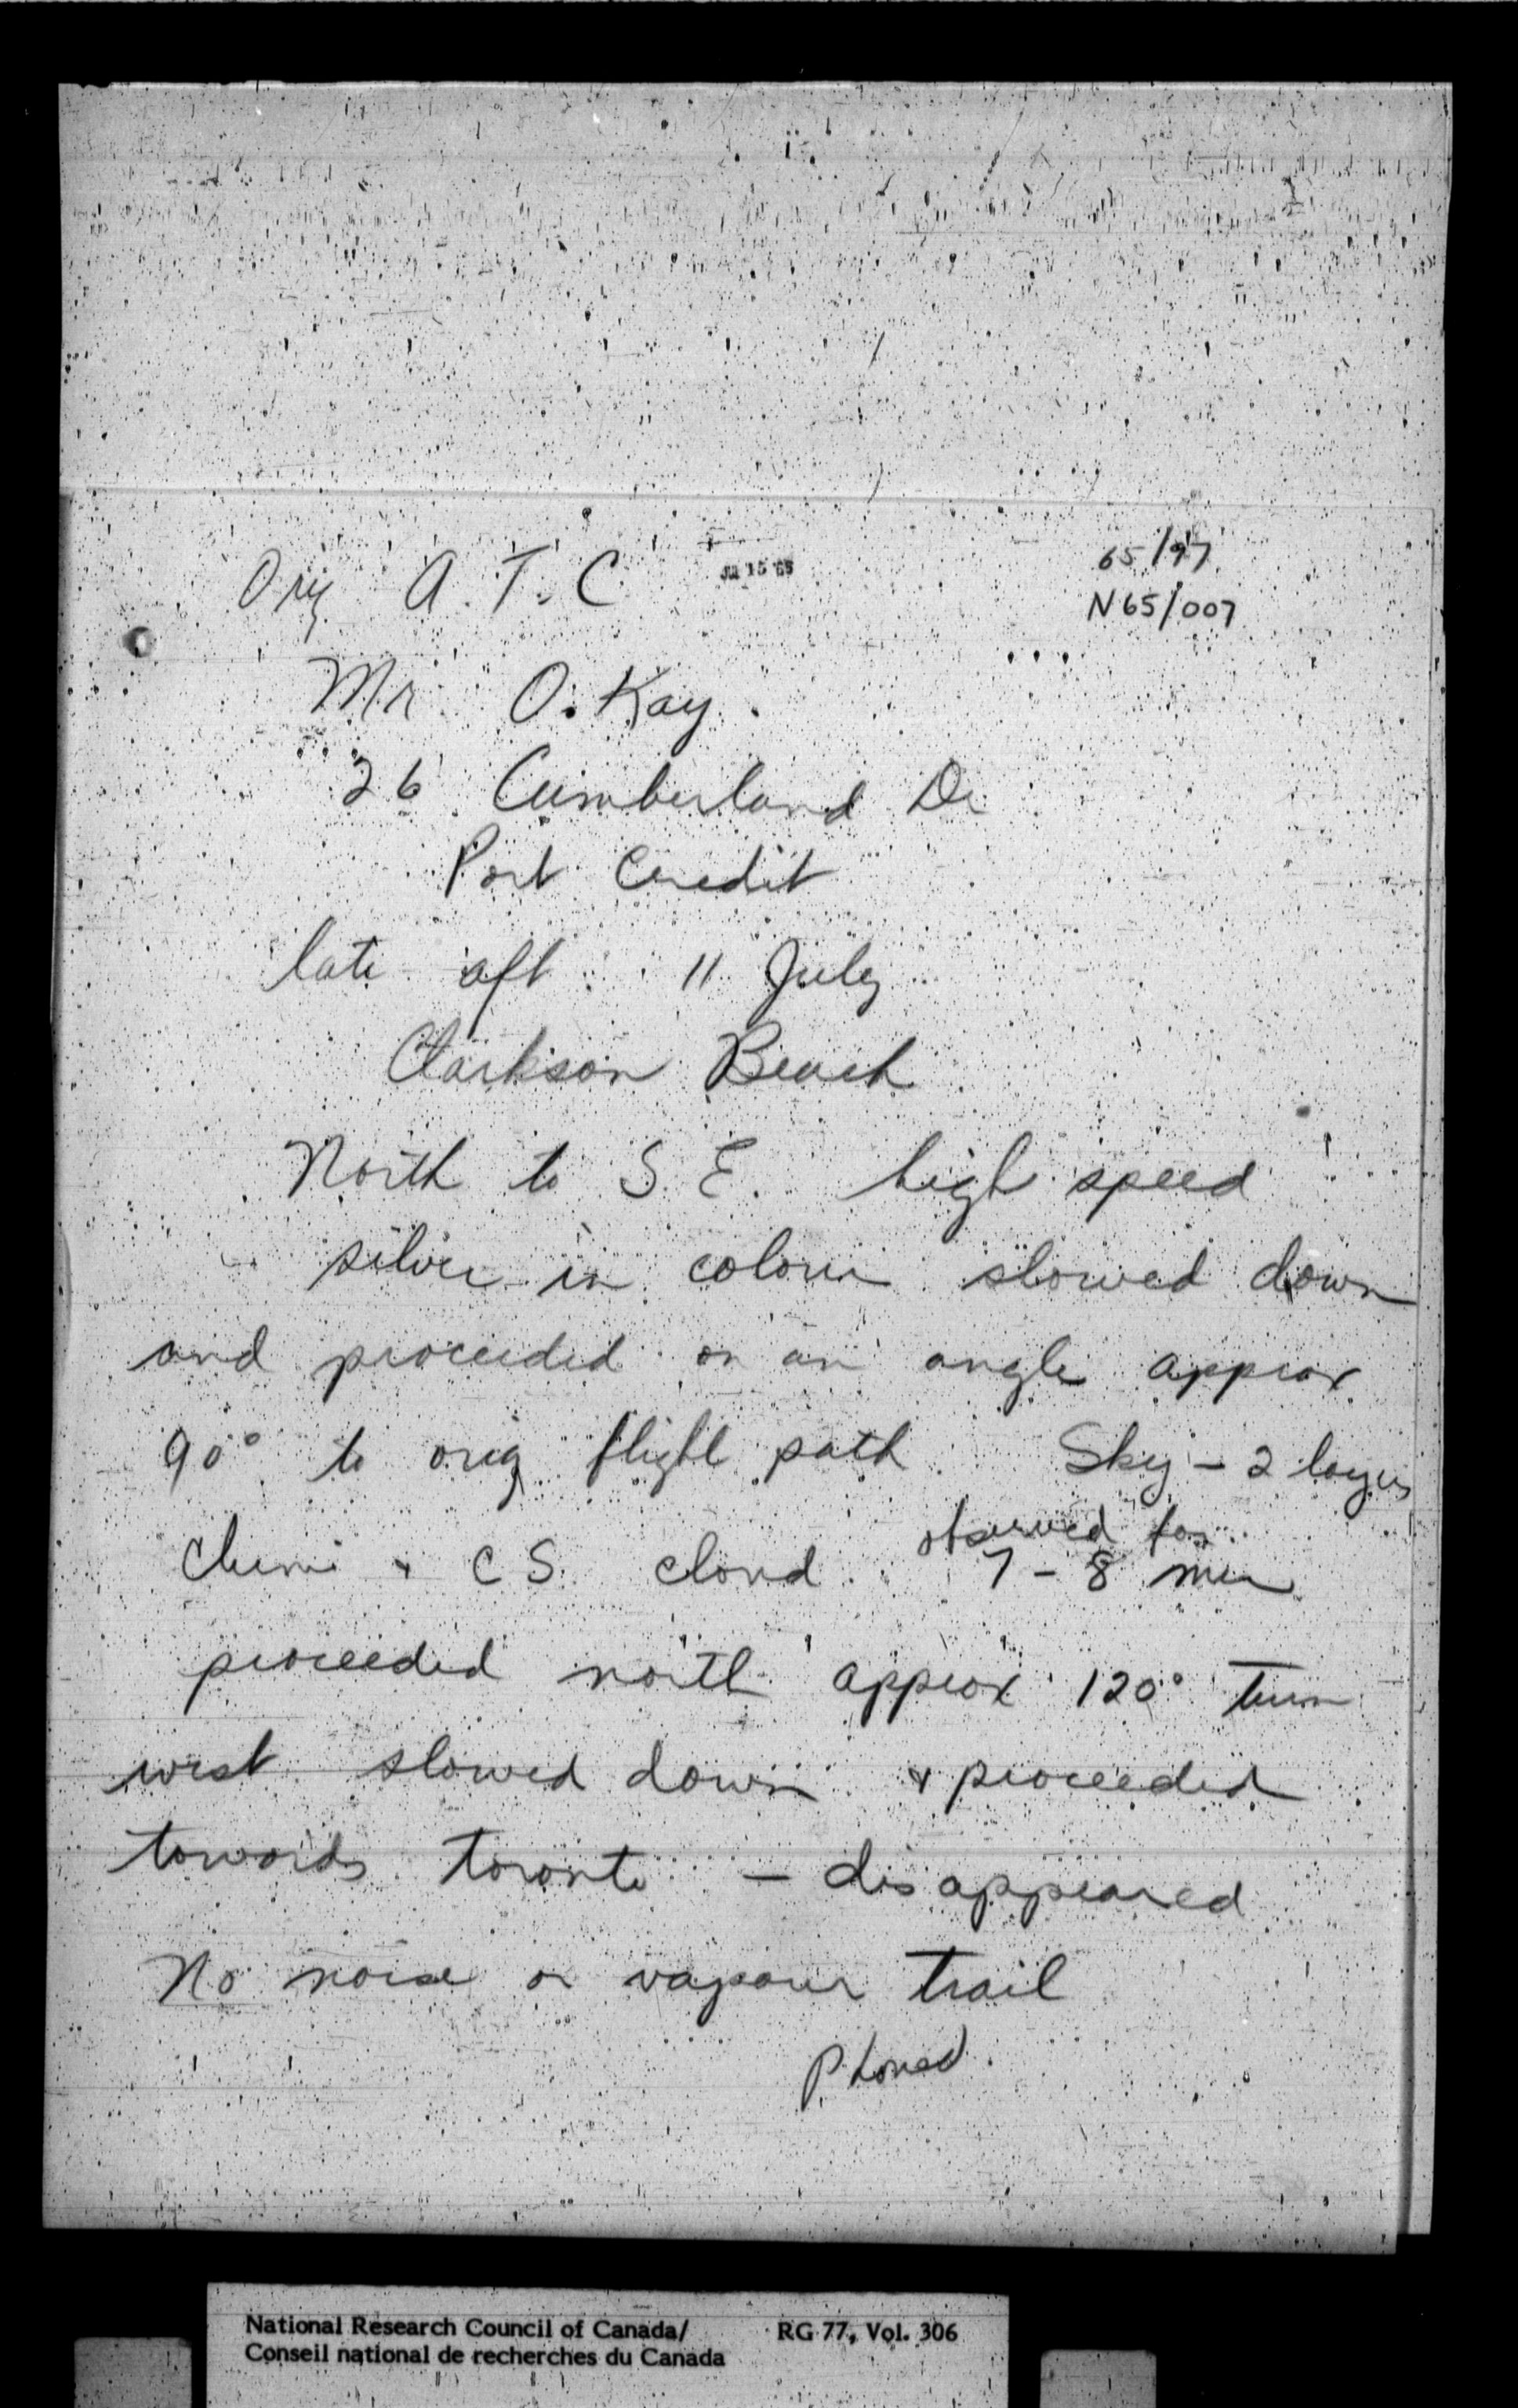 Orig A.T.C JUL 15 65 65/97
N65/007
Mr O. Kay.
26 Cumberland Dr
Port Credit
late aft. 11 July
Clarkson Beach
North to S.E. high speed
silver in colour slowed down
and proceeded on an angle approx
90° to orig flight path. Sky - 2 layers
observed for
& CS cloud. 7 - 8 min
proceeded north approx 120° turn
west slowed down & proceeded
towards Toronto - disappeared
No noise or vapour trail
Phoned.
National Research Council of Canada/ RG 77, Vol. 306
Conseil national de recherches du Canada